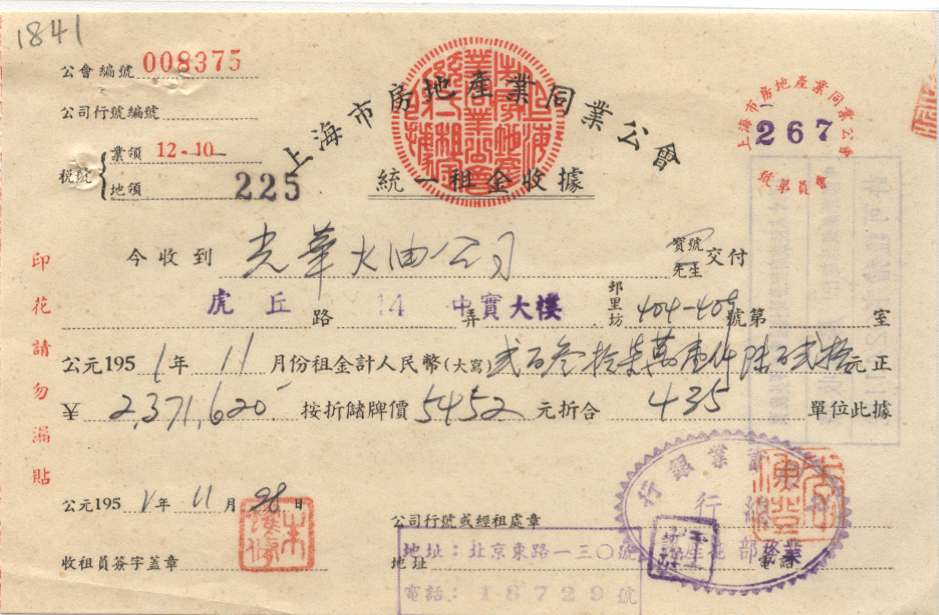 1841
公會編號 008375
公司行號編號
税號 業領 12-10
地領 225
上海市房地產業同業公會
統一租金收據
上海市房地產業同業公會
267
會員第 號
今收到 光華火油公司 寶號 先生 交付
虎丘 路 14 弄 中實大樓 邨里坊 404-409 號第 室
公元1951年11月份租金計人民幣(大寫) 貳百叁拾柒萬壹仟陸百貳拾元正
¥ 2,371,620 按折儲牌價 5452 元折合 435 單位此據
印花請勿漏貼
公元1951年11月28日
公司行號或經租處章
收租員簽字蓋章
地址 電話
實業銀行
總行
地產部
地址：北京東路一三〇號
電話：18729號